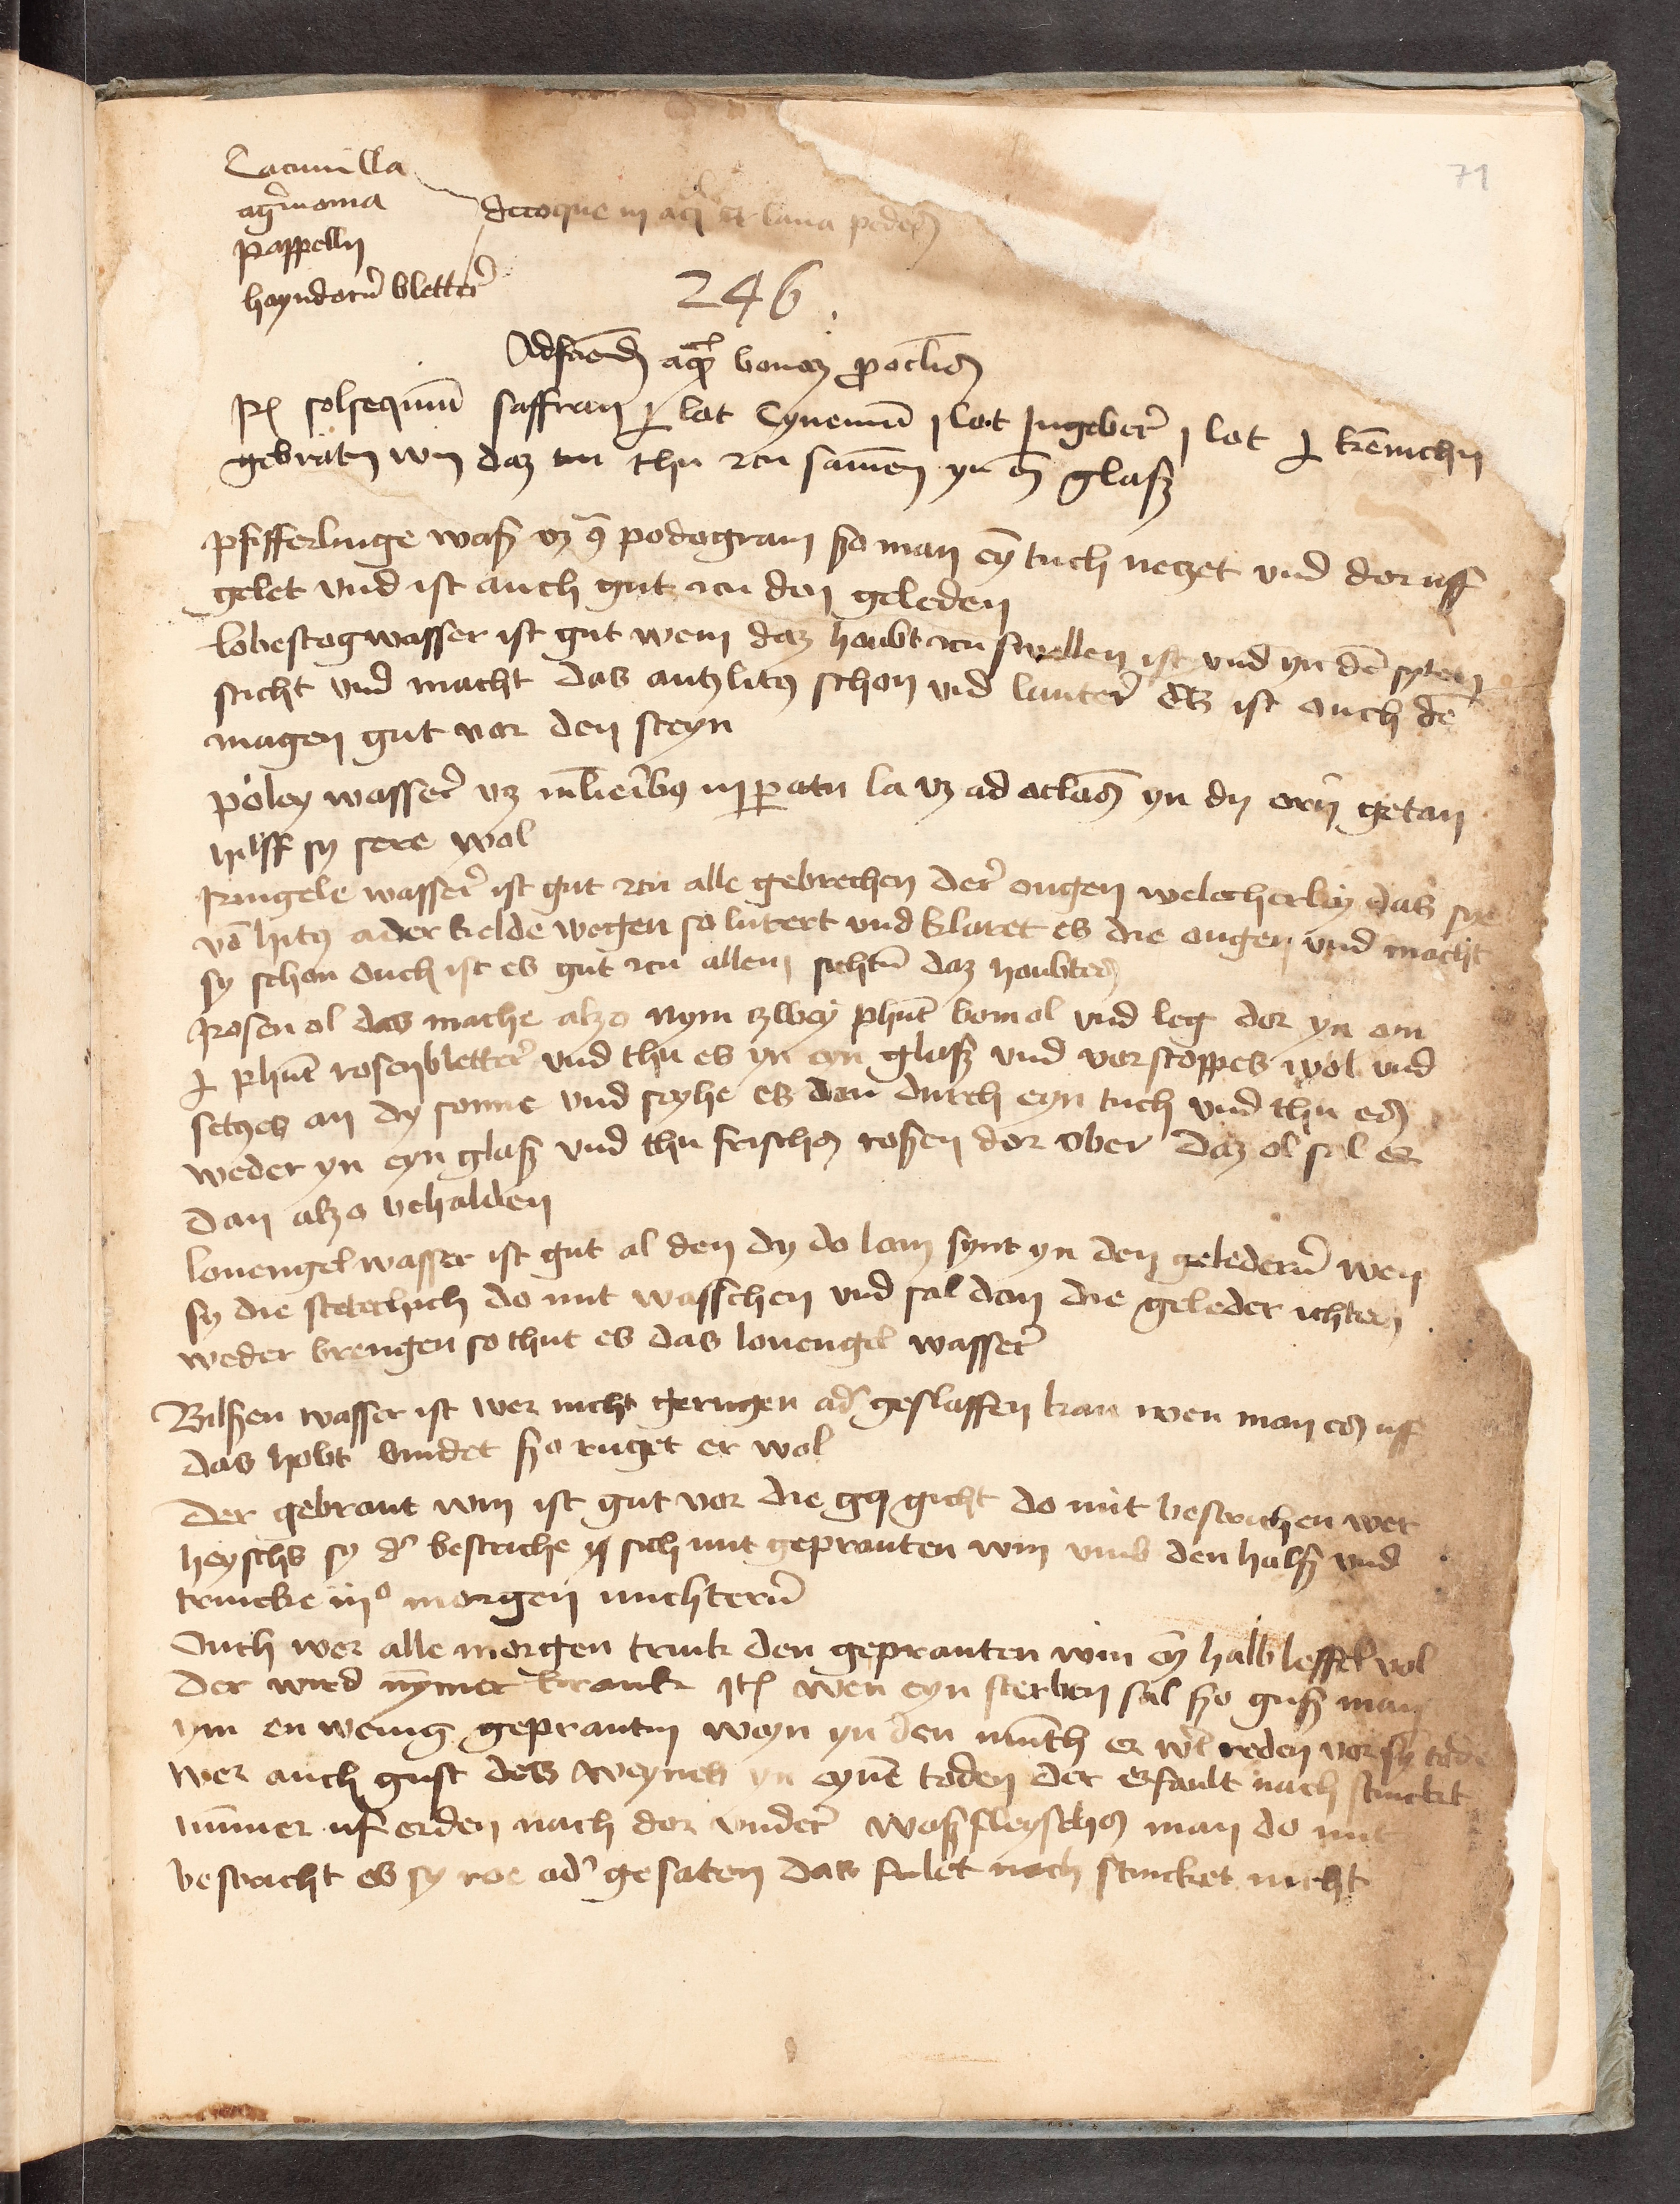 71
Camilla
agrimonia
pappelln
hayndorn bletter
decoque in aqua et lava pedes
246
Ad faciendum aquam bonam pro oculis
Rx solsequium saffran lot Cynemum j lot Ingeber j lot
gebranten win daz thu zcu samen yn glasz
Pfifferlinge wasser podogram szo man eyn tuch neczet und dor uff
gelet und ist auch gut zcu den geleden
lobestog wasser ist gut wem daz houbt zcu swellen ist und yn den syten
sticht und macht das antzlitz schon und lauter Es ist auch dem
magen gut vor den steyn
poley wasser yn dy orn getan
hilff sy sere wol
Ringele wasser ist gut zcu alle gebrechen der ougen welcherley das sye
von hitz ader kelde wegen so lutert und klaret es die ougen und macht
sy schon ouch ist es gut zcu allem sichtum daz houbtes
Rosen ol das mache alzo nym zwey phunt bomol und leg dor yn
phunt rosenbletter und thu es yn eyn glasz und vorstoppes wol und
setzes an dy sonne und syhe es dan durch eyn tuch und thu es
weder yn eyn glasz und thu frisches rosen dor ober daz ol sal er
dan alzo behalden
louengel wasser ist gut al den dy do lam synt yn den geledern wen
sy die stetlich do mit wasschen und sal dan die geleder
weder brengen so thut es das louengel wasser
Bilszen wasser ist wer nicht gerugen ader geslaffen kan wen man es uff
das hobt bindet szo ruget er wol
Der gebrant win ist gut vor die gicht do mit bestrichen wer
heyschs sy der bestriche sich mit gepranten win umb den halsz und
trincke morgen nuchtern
Ouch wer alle morgen trink den gepranten win eyn halb leffel vol
der wird nymer krank Item wen eyn sterben sal szo gusz man
ym en wenig geprantin weyn yn den munth er wil reden vor sy tode
wer auch gust des weynes yn eynem toden der erfault nach stinckt
nummer uf erden nach dor under wasz fleysches man do mit
bestricht es sy roe ader gesaten das fulet nach stincket nicht